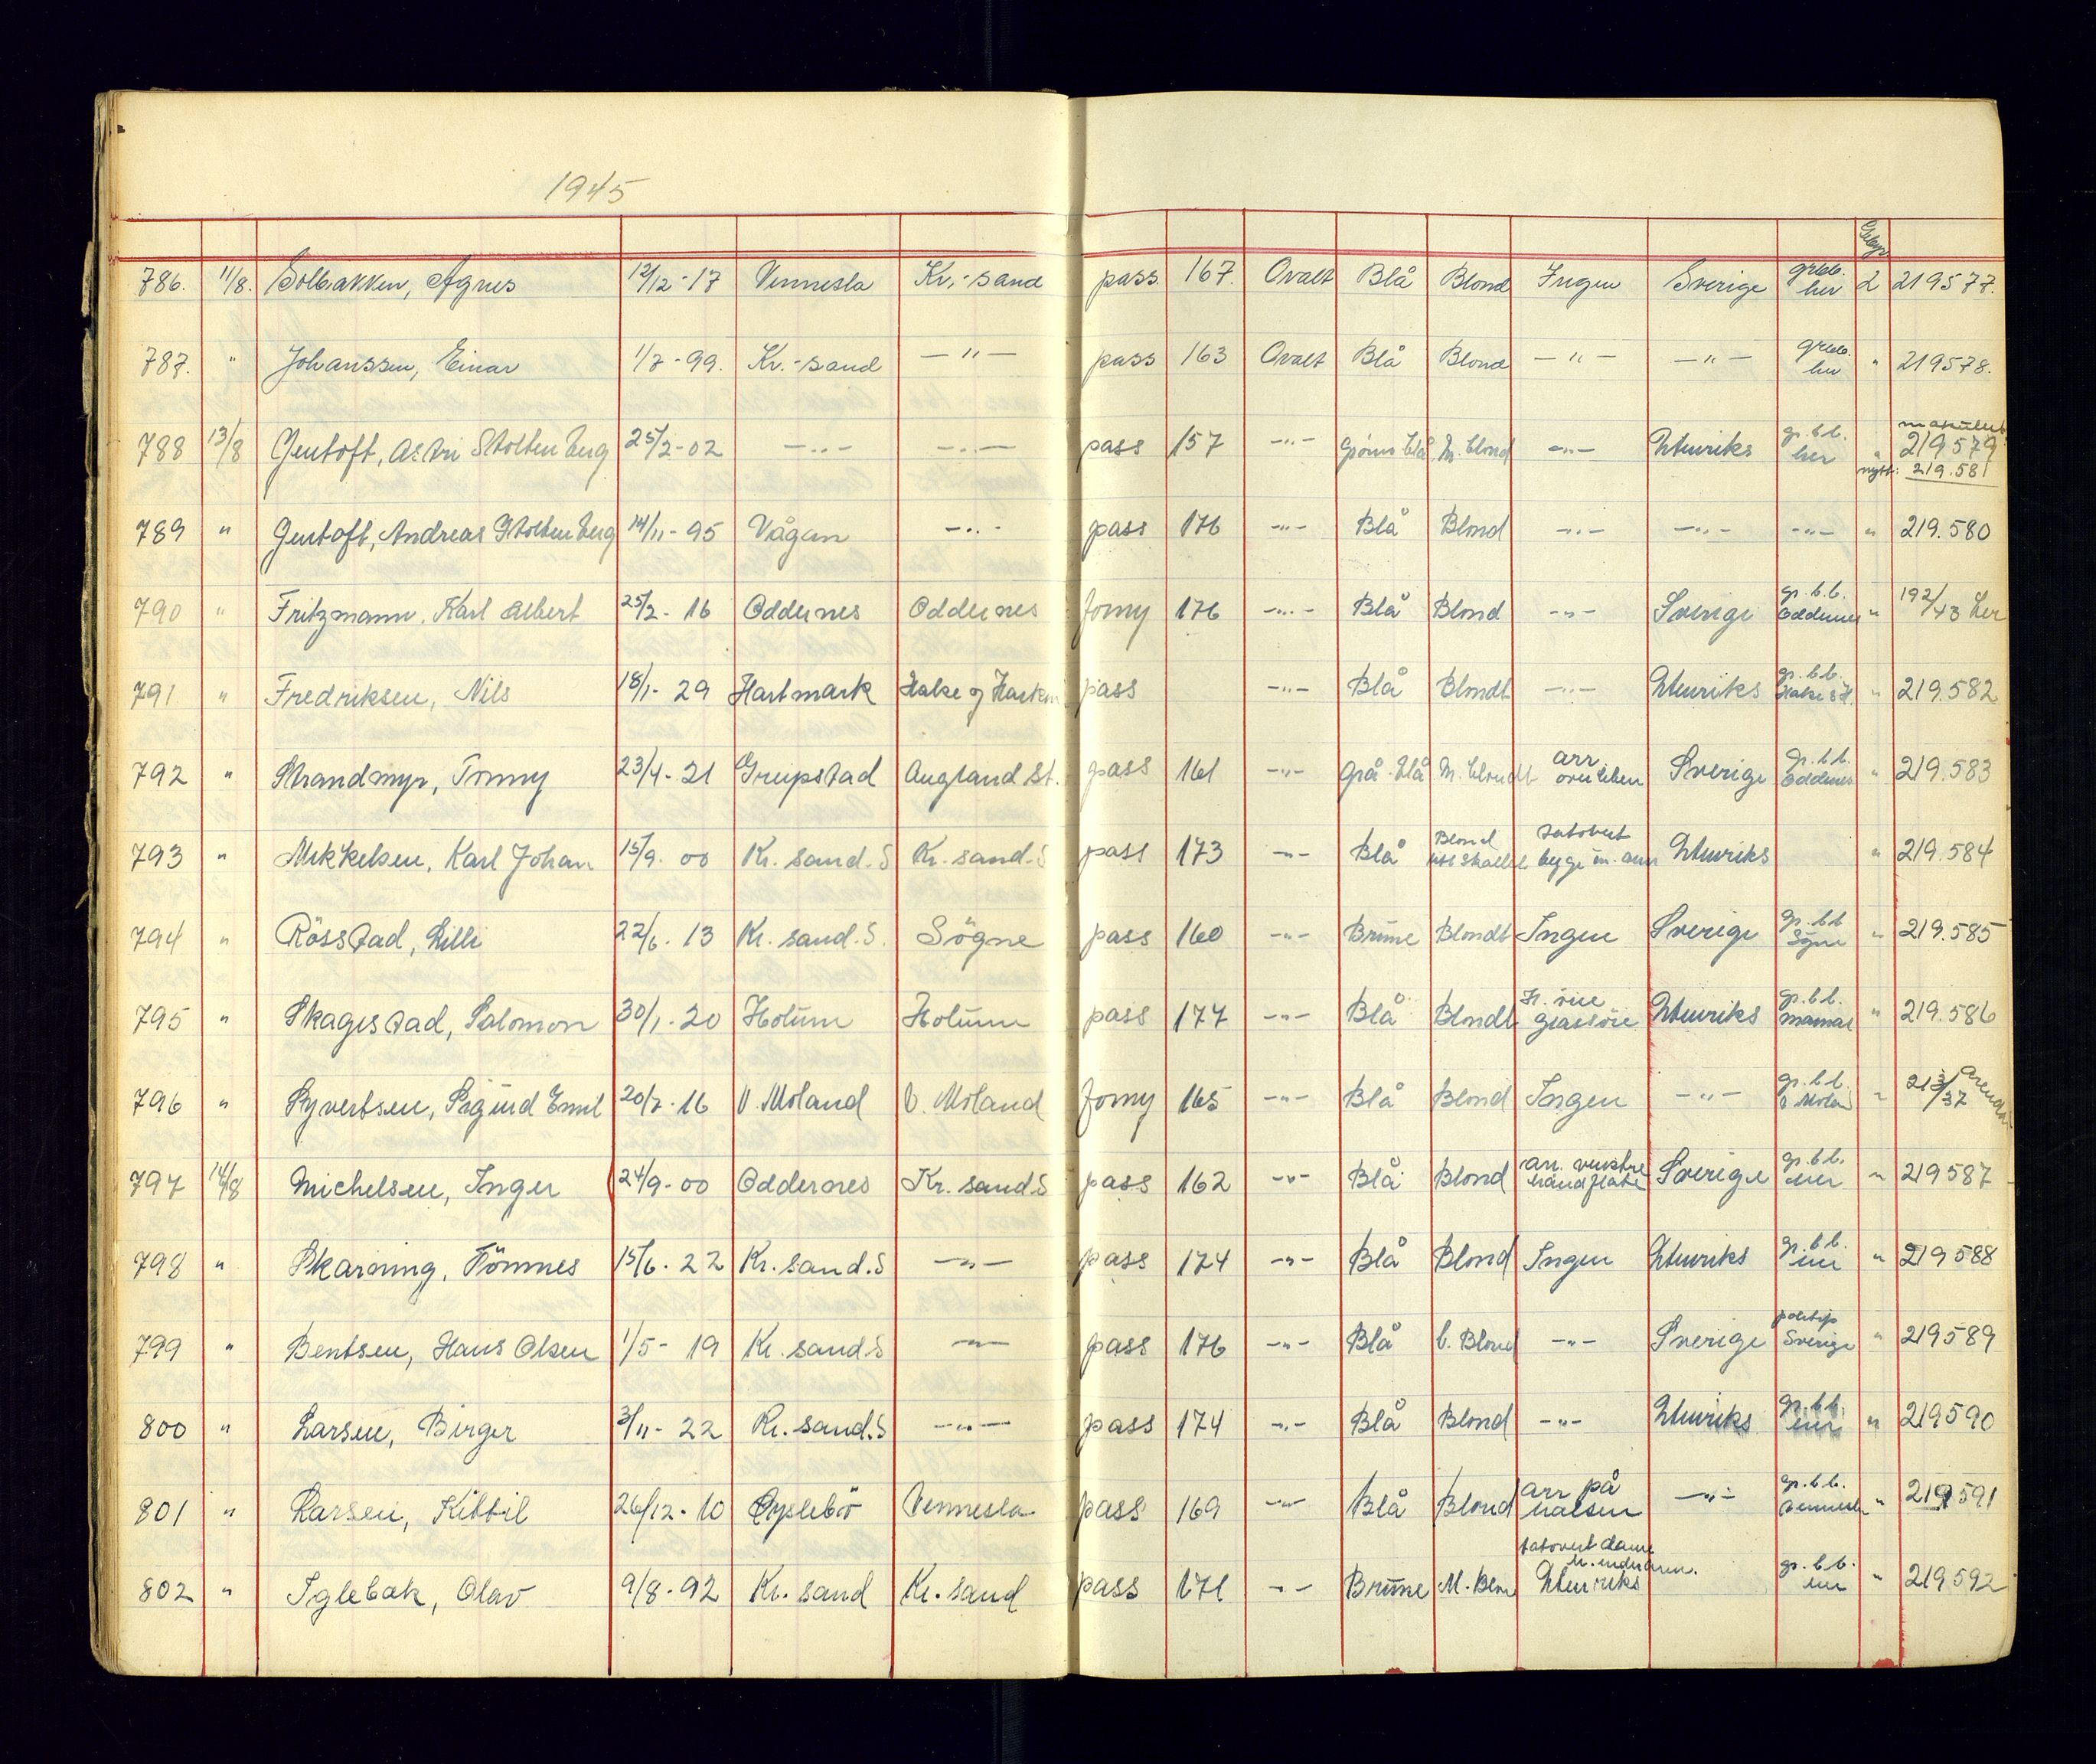 1945
Gebyr
786. 11/8. Solbakken, Agnes 12/12-17 Vennesla Kr.-sand pass. 167. Ovalt Blå Blond Ingen Sverige grbb. her 2 219577.
787. " Johanssen, Einar 1/7-99. Kr.-sand -"- pass 163 Ovalt Blå Blond -"- -"- grbb. her " 219578.
788 13/8 Gentoft, Astri Stoltenberg 25/2-02 -"- -"- pass 157 -"- Grønn blå M. blond -"- Utenriks gr.b.b. her " makulert 219579
nytt: 219.581
789 " Gentoft, Andreas Stoltenberg 14/11-95 Vågan -"- pass 176 -"- Blå Blond -"- -"- -"- " 219.580
790 " Fritzmann, Karl Albert 25/2-16 Oddernes Oddernes Forny 176 -"- Blå Blond -"- Sverige gr.b.b. Oddernes " 192/43 her
791 " Fredriksen, Nils 18/1-29 Hartmark Halse og Harkm pass -"- Blå Blondt -"- Utenriks gr.b.b. Halse & H. " 219.582
792 " Strandmyr, Tommy 23/4-21 Greipstad Augland st. pass 161 -"- Grå-blå M. blondt arr over leben Sverige gr.b.b. Oddernes " 219.583
793 " Mikkelsen, Karl Johan 15/9-00 Kr. sand.S Kr. sand.S pass 173 -"- Blå Blond tatovert begge u. arm Utenriks " 219.584
794 " Rösstad, Lilli 22/6-13 Kr. sand.S. Sögne pass 160 -"- Brune Blondt Ingen Sverige gr.b.b Sögne " 219.585
795 " Skagestad, Salomon 30/1-20 Holum Holum pass 177 -"- Blå Blondt H. öie glassöie Utenriks gr.b.b. Mandal " 219.586
796 " Syvertsen, Sigurd Emil 20/7-16 V. Moland V. Moland Forny 165 -"- Blå Blond Ingen -"- gr.b.b. V. Moland " 213/37 Arendal
797 14/8 Michelsen, Inger 24/9-00 Oddernes Kr. sand S pass 162 -"- Blå Blond arr. venstre håndflate Sverige gr.b.b. her " 219587
798 " Skarning, Tönnes 15/6-22 Kr. sand.S -"- pass 174 -"- Blå Blond Ingen Utenriks gr.b.b. her " 219588
799 " Bentsen, Hans Olsen 1/5-19 Kr. sand S -"- pass 176 -"- Blå b. Blond -"- Sverige Sverige " 219589
800 " Larsen, Birger 3/11-22 Kr. sand.S -"- pass 174 -"- Blå Blond -"- Utenriks gr.b.b. her " 219590
801 " Larsen, Kittil 26/12-10 Öyslebö Vennesla pass 169 -"- Blå Blond arr på halsen -"- gr.b.b. Vennesla " 219591
802 " Iglebæk, Olav 9/8-92 Kr. sand Kr. sand pass 171 -"- Brune tatovert dame h. underarm. Utenriks gr.b.b. her " 219592